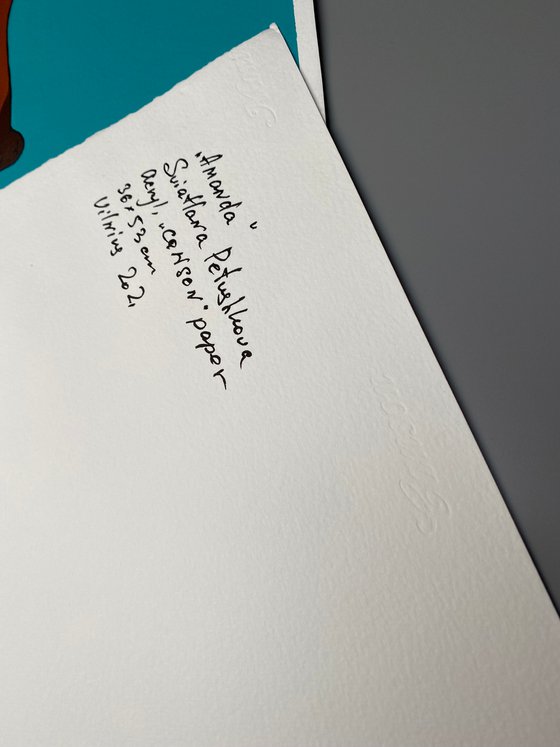 „Amanda"
Sviatlana Petushkova
acryl, „CANSON" paper
36×53 cm
Vilnius 2021